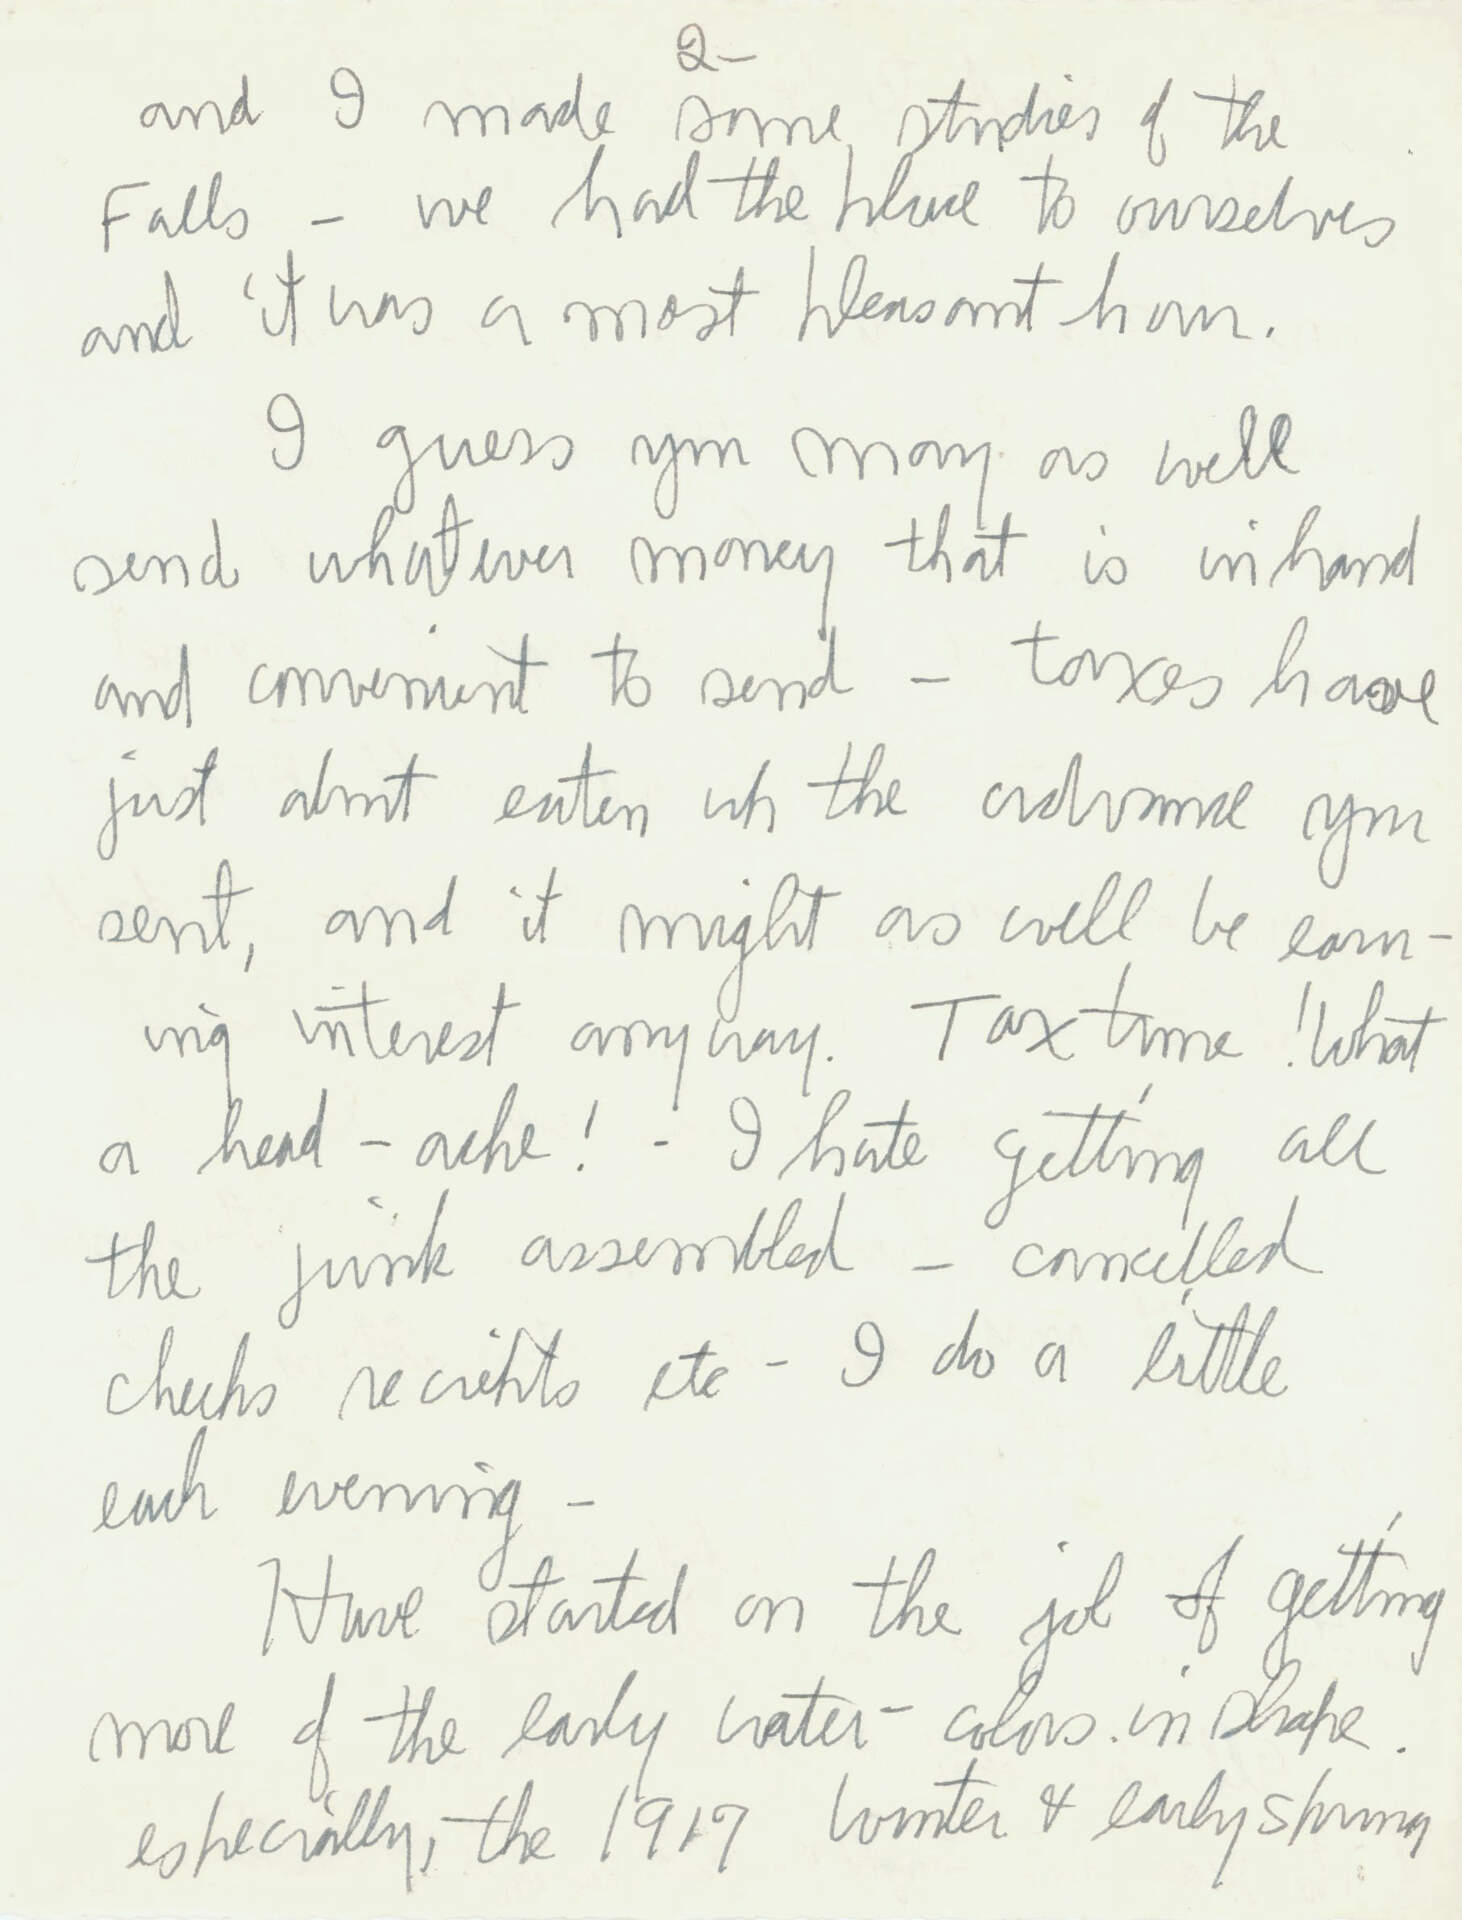 2-
and I made some studies of the
Falls - we had the place to ourselves
and it was a most pleasant hour.
I guess you may as well
send whatever money that is in hand
and convenient to send - taxes have
just about eaten up the advance you
sent, and it might as well be earn-
ing interest anyway. Tax time! What
a head-ache! - I hate getting all
the junk assembled - cancelled
checks reciepts etc - I do a little
each evening -
Have started on the job of getting
more of the early water-colors in shape.
especially, the 1917 Winter & early spring